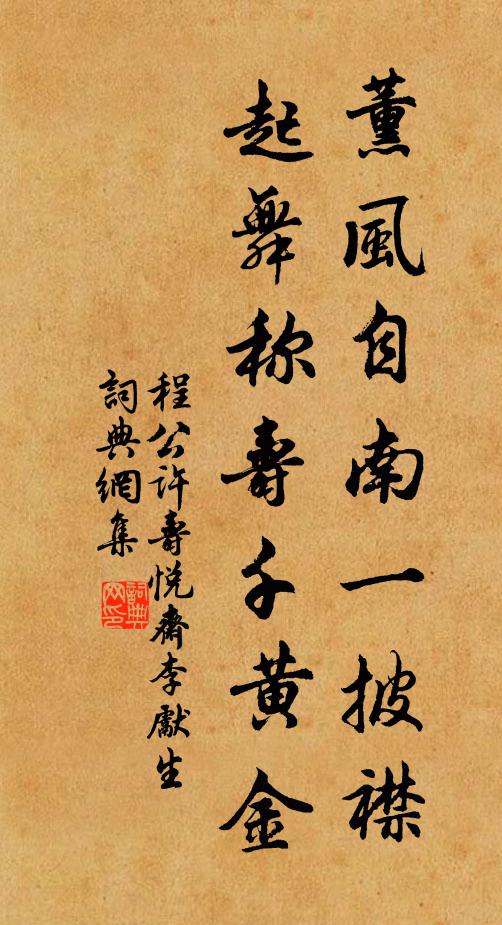 薰風自南一披襟
起舞称壽千黃金
程公许壽悦齋李獻生
詞典網集
詞典網印